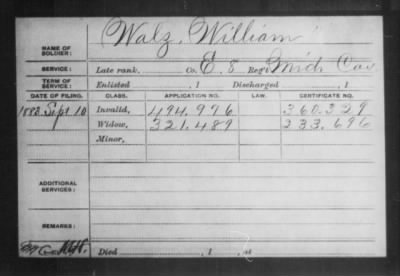 Walz, William
NAME OF SOLDIER:
SERVICE: Late rank, Co. E, 8 Reg't Mich Cav
TERM OF SERVICE: Enlisted , 1 Discharged , 1
DATE OF FILING. CLASS. APPLICATION NO. LAW. CERTIFICATE NO.
1883 Sept 10 Invalid, 494.976 360.329
Widow, 321.489 233.696
Minor,
ADDITIONAL SERVICES:
REMARKS:
Died , 1 , at